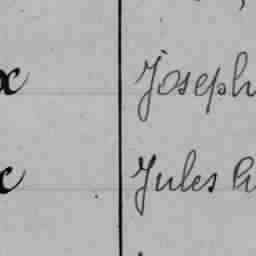 x Joseph
x Jules